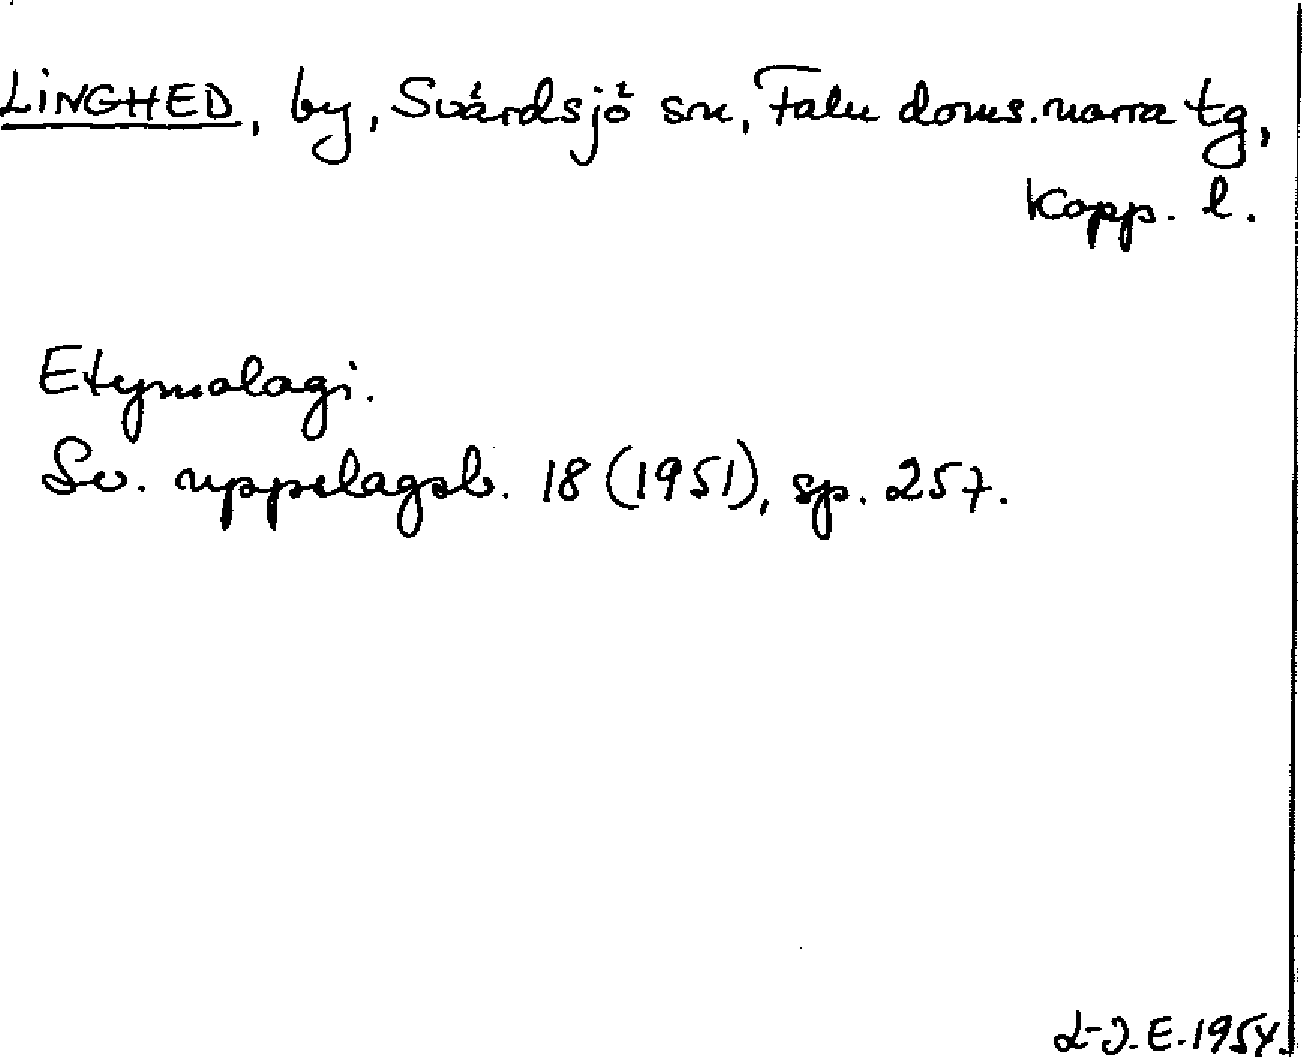 LINGHED, by, Svärdsjö sn, Falu doms. norra tg,
Kopp. l.
Etymologi.
Sv. uppslagsb. 18 (1951), sp. 257.
L-J. E. 1954.